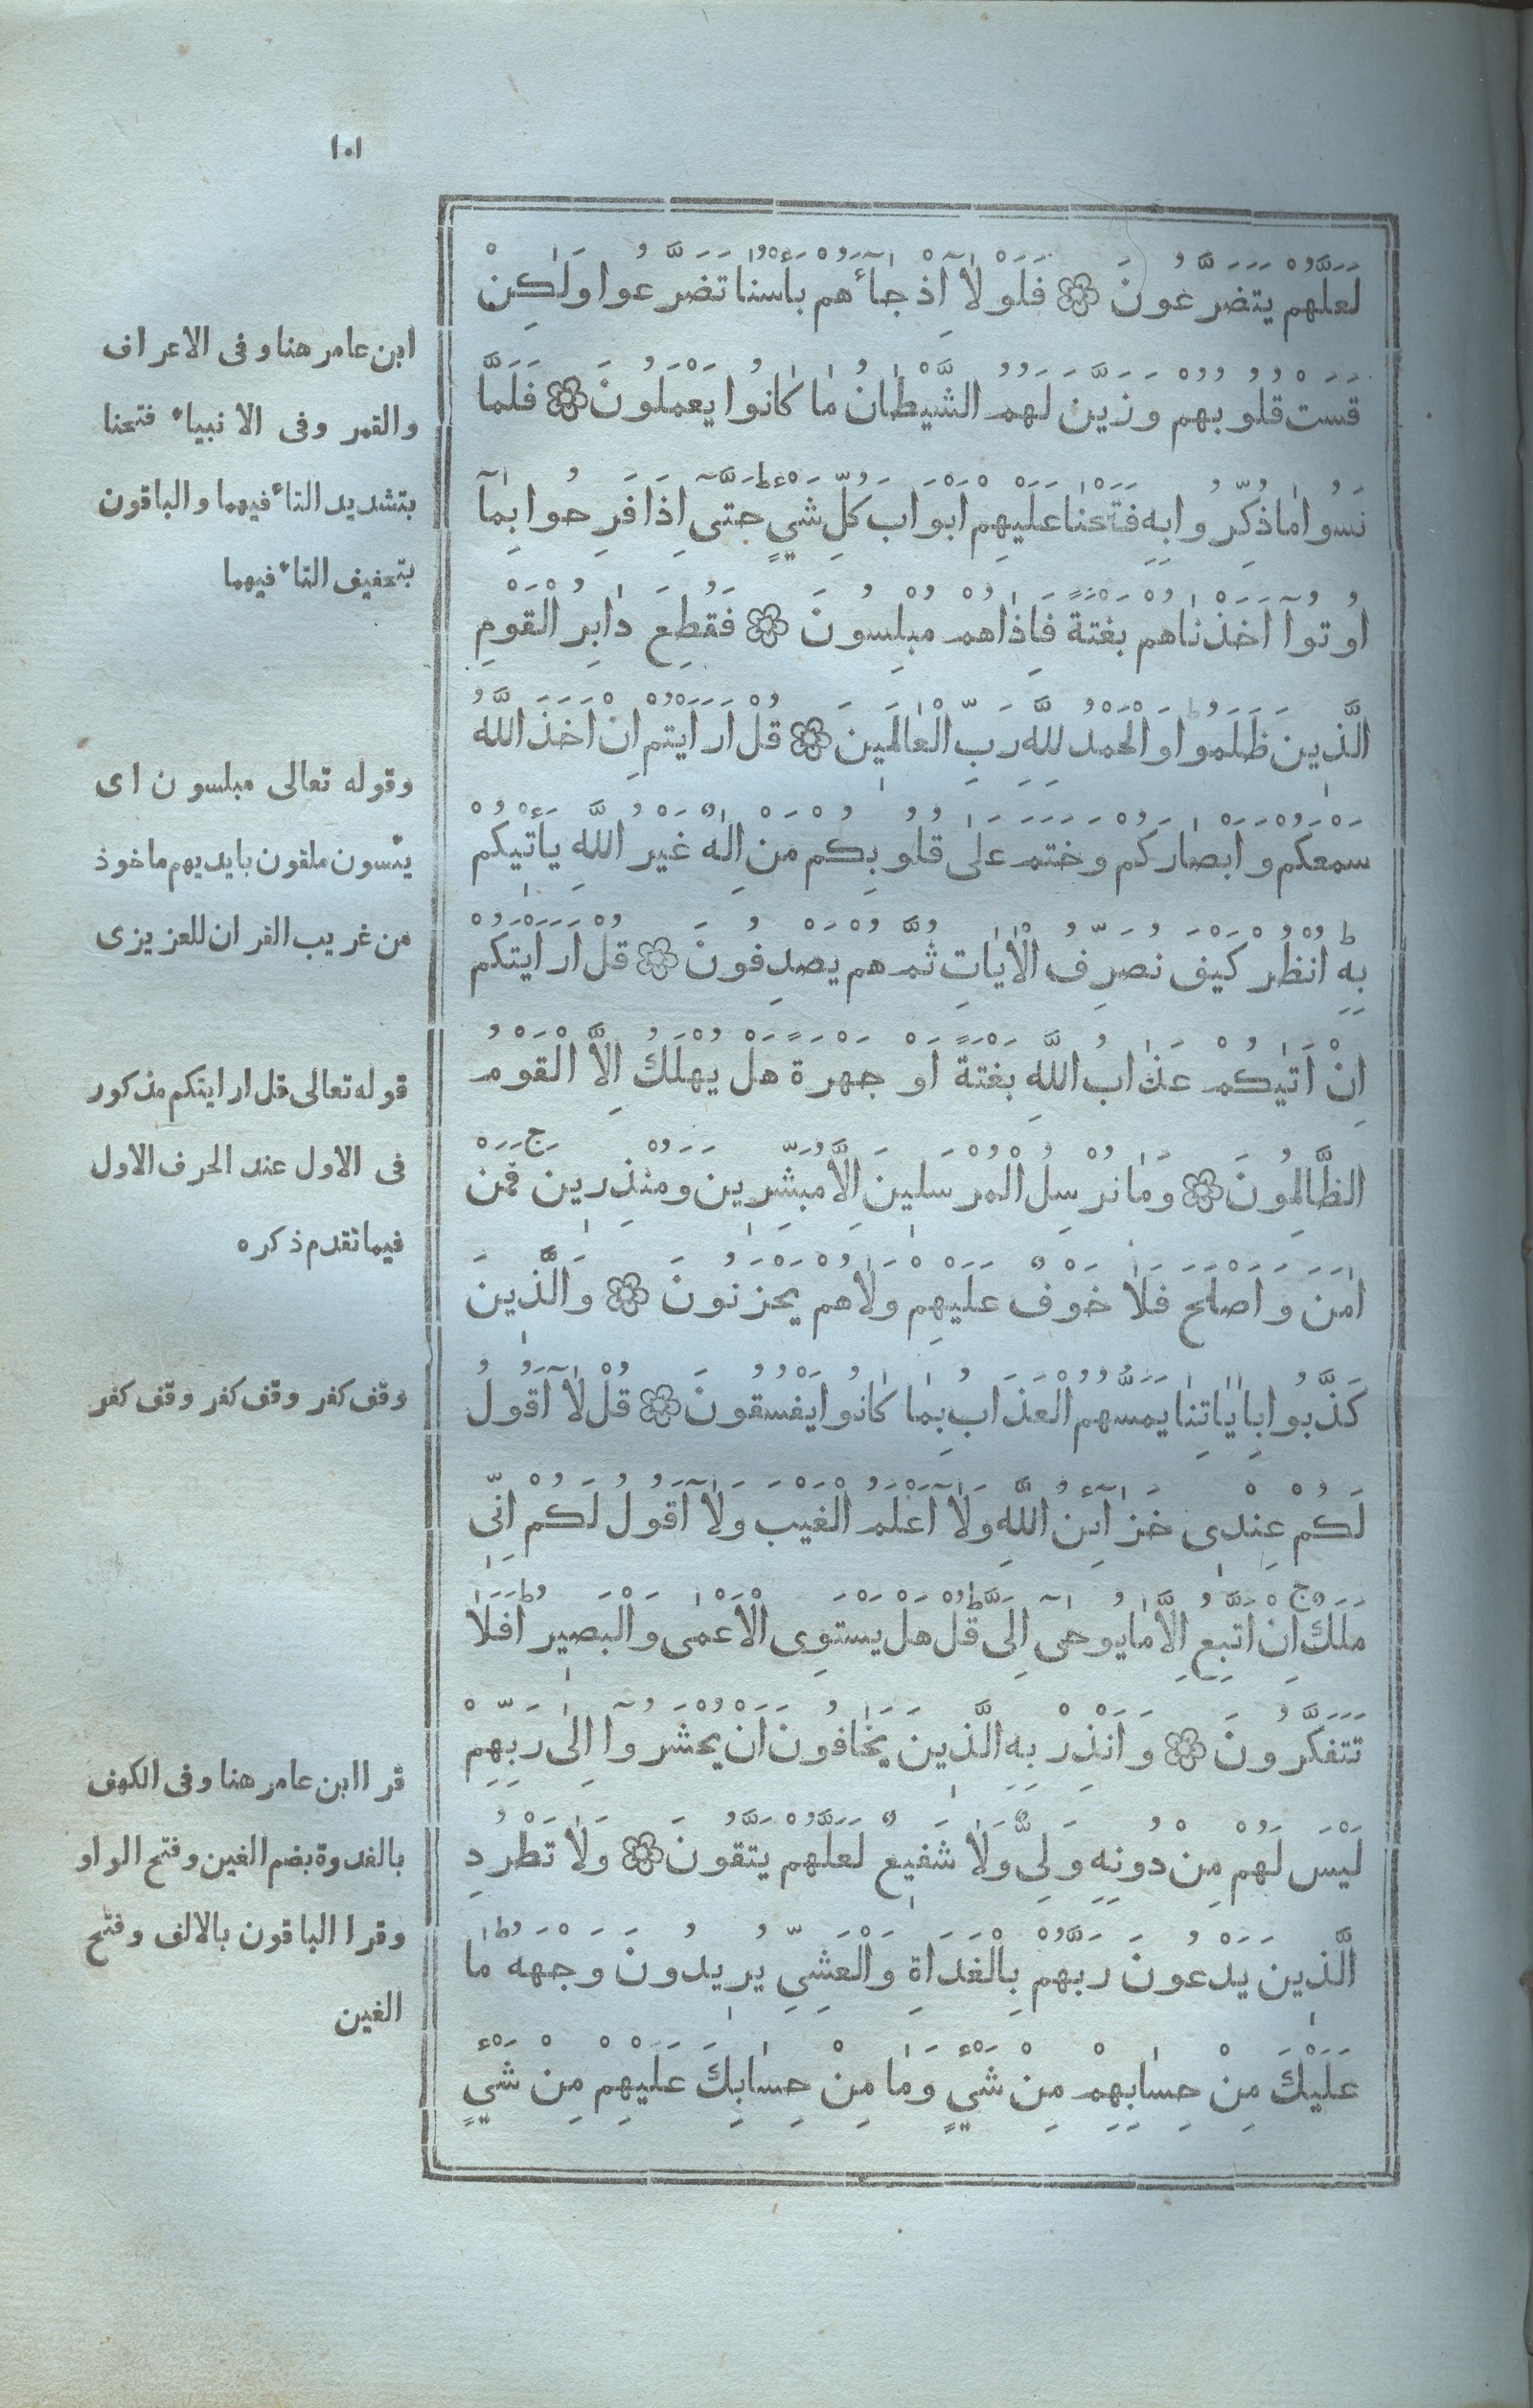 ١٠١
لَعَلَّهُمْ يَتَضَرَّعُونَ ۞ فَلَوْلَآ اِذْ جَآءَهُمْ بَأْسُنَا تَضَرَّعُوا وَلٰكِنْ
قَسَتْ قُلُوبُهُمْ وَزَيَّنَ لَهُمُ الشَّيْطَانُ مَا كَانُوا يَعْمَلُونَ ۞ فَلَمَّا
نَسُوا مَا ذُكِّرُوا بِهِ فَتَحْنَا عَلَيْهِمْ اَبْوَابَ كُلِّ شَيْءٍ ط حَتَّىٓ اِذَا فَرِحُوا بِمَآ
اُوتُوٓا اَخَذْنَاهُمْ بَغْتَةً فَاِذَا هُمْ مُبْلِسُونَ ۞ فَقُطِعَ دَابِرُ الْقَوْمِ
الَّذِينَ ظَلَمُوا ط وَالْحَمْدُ لِلّٰهِ رَبِّ الْعَالَمِينَ ۞ قُلْ اَرَاَيْتُمْ اِنْ اَخَذَ اللّٰهُ
سَمْعَكُمْ وَاَبْصَارَكُمْ وَخَتَمَ عَلَى قُلُوبِكُمْ مَنْ اِلٰهٌ غَيْرُ اللّٰهِ يَأْتِيكُمْ
بِهِ ط اُنْظُرْ كَيْفَ نُصَرِّفُ الْاٰيَاتِ ثُمَّ هُمْ يَصْدِفُونَ ۞ قُلْ اَرَاَيْتَكُمْ
اِنْ اَتٰيكُمْ عَذَابُ اللّٰهِ بَغْتَةً اَوْ جَهْرَةً هَلْ يُهْلَكُ اِلَّا الْقَوْمُ
الظَّالِمُونَ ۞ وَمَا نُرْسِلُ الْمُرْسَلِينَ اِلَّا مُبَشِّرِينَ وَمُنْذِرِينَ ج فَمَنْ
اٰمَنَ وَاَصْلَحَ فَلَا خَوْفٌ عَلَيْهِمْ وَلَا هُمْ يَحْزَنُونَ ۞ وَالَّذِينَ
كَذَّبُوا بِاٰيَاتِنَا يَمَسُّهُمُ الْعَذَابُ بِمَا كَانُوا يَفْسُقُونَ ۞ قُلْ لَآ اَقُولُ
لَكُمْ عِنْدِى خَزَآئِنُ اللّٰهِ وَلَآ اَعْلَمُ الْغَيْبَ وَلَآ اَقُولُ لَكُمْ اِنِّى
مَلَكٌ ج اِنْ اَتَّبِعُ اِلَّا مَا يُوحٰىٓ اِلَىَّ ط قُلْ هَلْ يَسْتَوِى الْاَعْمٰى وَالْبَصِيرُ ط اَفَلَا
تَتَفَكَّرُونَ ۞ وَاَنْذِرْ بِهِ الَّذِينَ يَخَافُونَ اَنْ يُحْشَرُوٓا اِلٰى رَبِّهِمْ
لَيْسَ لَهُمْ مِنْ دُونِهِ وَلِىٌّ وَلَا شَفِيعٌ لَعَلَّهُمْ يَتَّقُونَ ۞ وَلَا تَطْرُدِ
الَّذِينَ يَدْعُونَ رَبَّهُمْ بِالْغَدَاةِ وَالْعَشِىِّ يُرِيدُونَ وَجْهَهُ ط مَا
عَلَيْكَ مِنْ حِسَابِهِمْ مِنْ شَيْءٍ وَمَا مِنْ حِسَابِكَ عَلَيْهِمْ مِنْ شَيْءٍ
ابن عامر هنا وفى الاعراف
والقمر وفى الانبياء فتحنا
بتشديد التاء فيهما والباقون
بتخفيف التاء فيهما
وقوله تعالى مبلسون اى
يئسون ملقون بايديهم ماخوذ
من غريب القران للعزيزى
قوله تعالى قل ارايتكم مذكور
فى الاول عند الحرف الاول
فيما تقدم ذكره
وقف كفر وقف كفر وقف كفر
قرا ابن عامر هنا وفى الكهف
بالغدوة بضم الغين وفتح الواو
وقرا الباقون بالالف وفتح
الغين